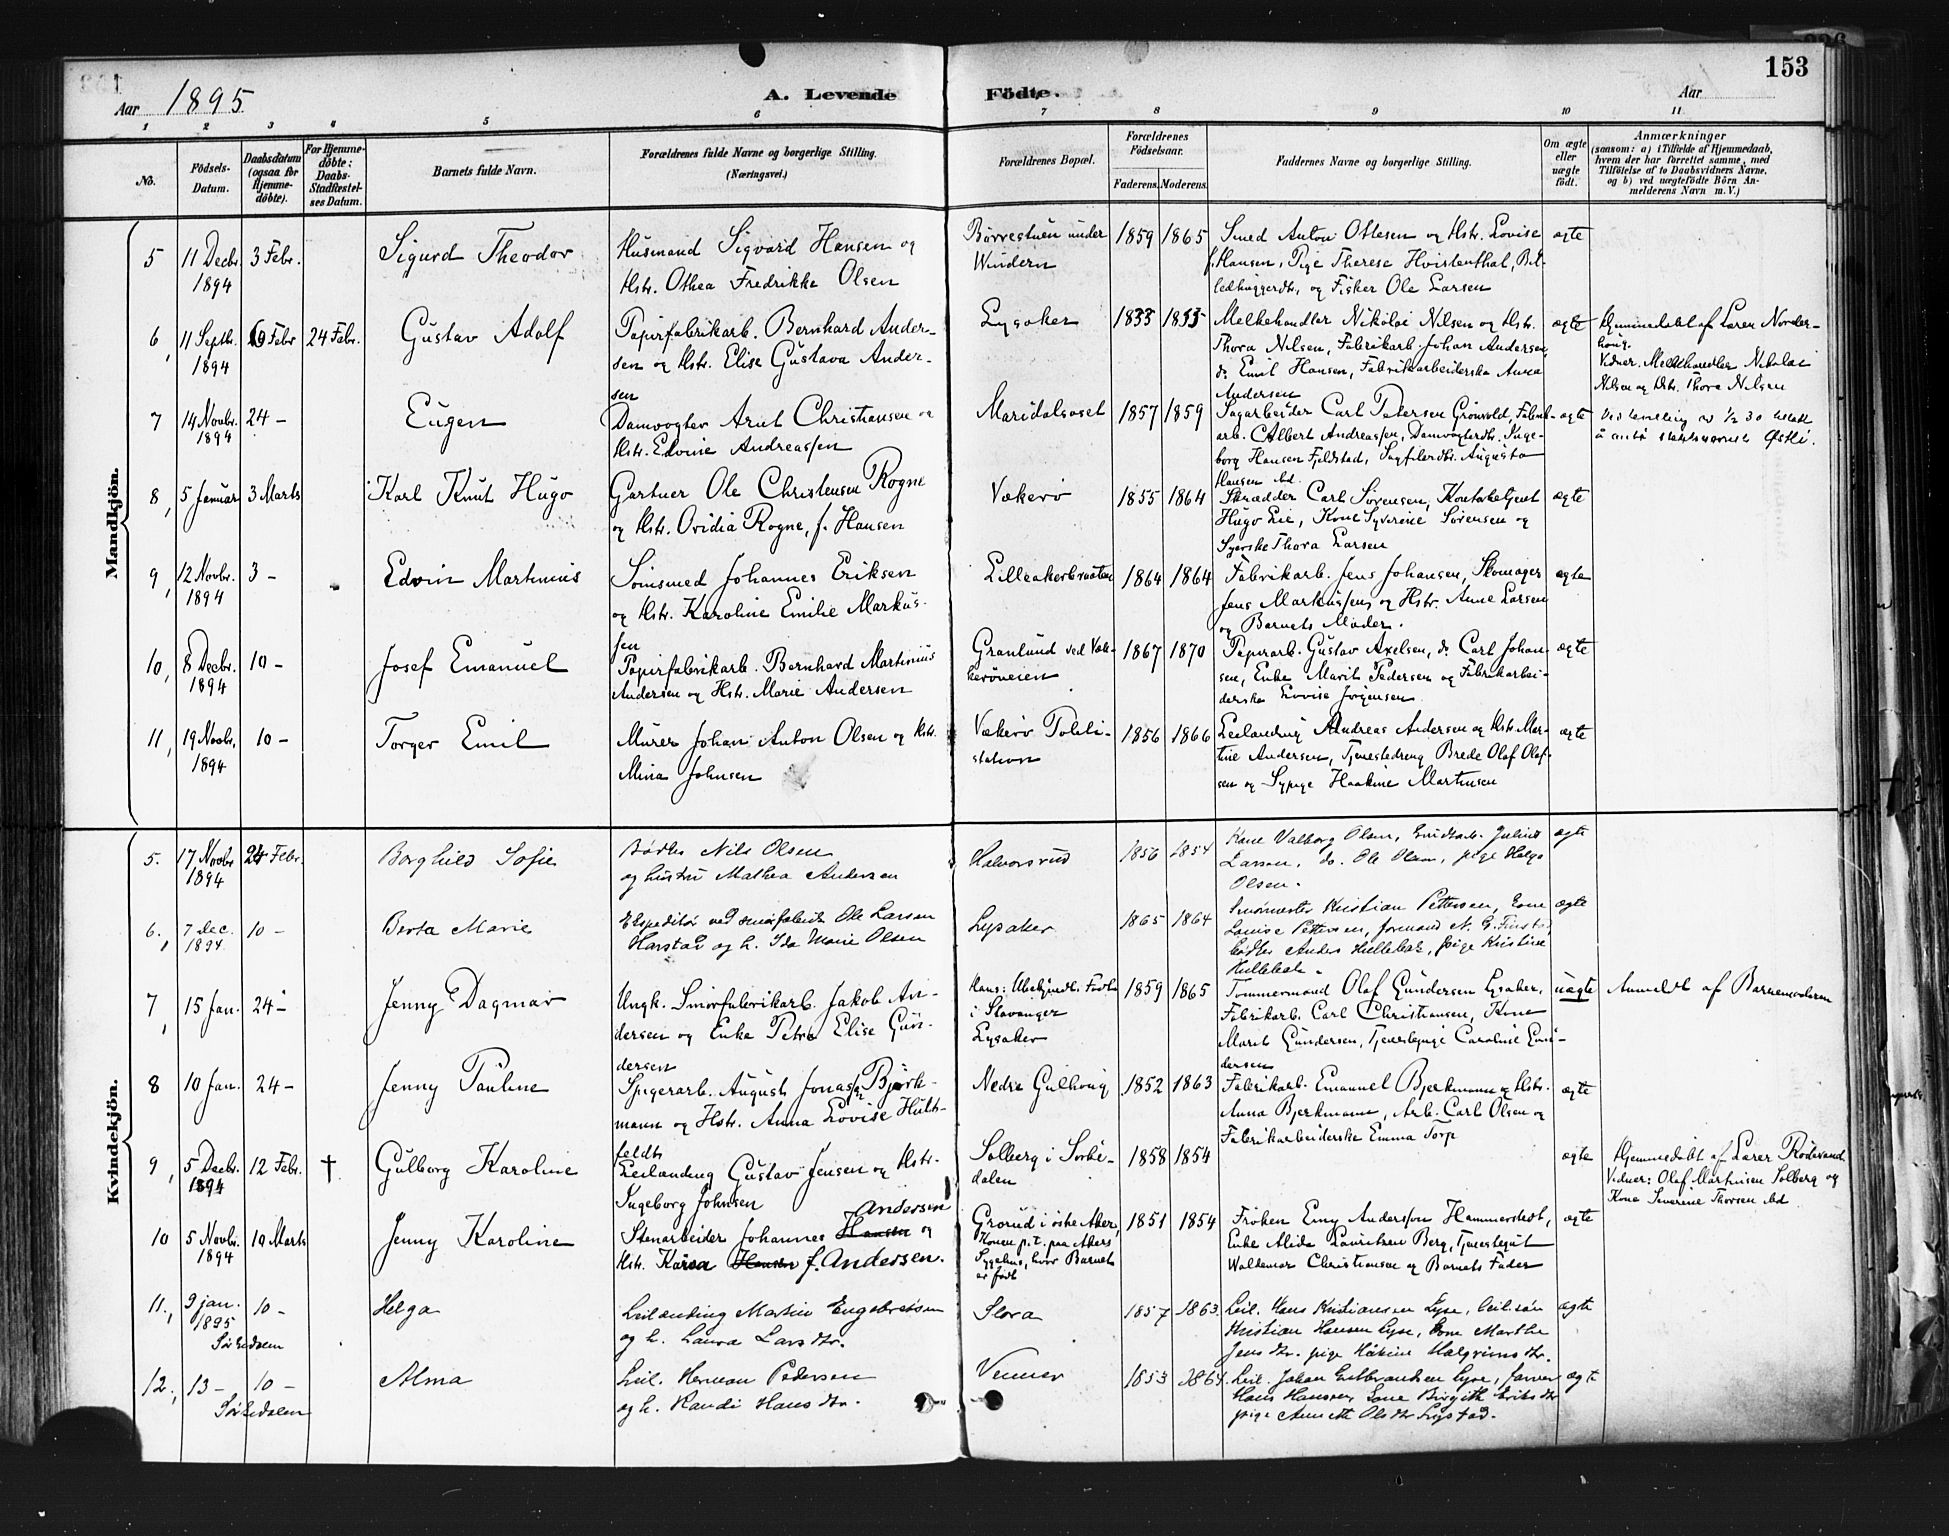 153
Aar 1895.
A. Levende Födte.
Aar
1 2 3 4 5 6 7 8 9 10 11
No.
Födsels-Datum.
Daabsdatum (ogsaa for Hjemme-döbte).
For Hjemme-döbte: Daabs-Stadfæstel-ses Datum.
Barnets fulde Navn.
Forældrenes fulde Navne og borgerlige Stilling. (Næringsvei.)
Forældrenes Bopæl.
Forældrenes Födselsaar.
Faderens. Moderens.
Faddernes Navne og borgerlige Stilling.
Om ægte eller uægte födt.
Anmærkninger
(saasom: a) i Tilfælde af Hjemmedaab, hvem der har forrettet samme, med Tilföielse af to Daabsvidners Navne, og b) ved uægtefödte Börn An-melderens Navn m. V.)
Mandkjön.
5 11 Decbr. 1894 3 Febr. Sigurd Theodor
Husmand Sigvard Hansen og
Hstr. Othea Fredrikke Olsen
Børrestuen under
Windern
1859 1865
Smed Anton Ottesen og Hstr. Lovise
f. Hansen, Pige Therese Hvistenthal, Bil-
ledhuggerdtr, og Fisker Ole Larsen
ægte
6, 11 Septb. 1894 Febr 24 Febr. Gustav Adolf
Papirfabrikarb. Bernhard Ander-
sen og Hstr. Elise Gustava Ander-
sen
Lysaker
1833 1855
Melkehandler Nikolai Nilsen og Hstr.
Thora Nilsen, Fabrikarb. Johan Andersen,
do Emil Hansen, Fabrikarbeiderske Anna
Andersen
ægte
Hjemmedøbt af Lærer Norder-
haug.
Vidner. Melkhandler Nikolai
Nilsen og Hstr. Thora Nilsen
7 14 Novbr. 1894 24 – Eugen
Damvogter Arnt Christiansen og
Hstr. Edvine Andreassen
Maridalsoset
1857 1859
Sagarbeider Carl Pedersen Grönvold, Fabrik-
arb. Albert Andreassen, Damvogterdtr. Inge-
borg Hansen Fjeldstad, Sagfilerdtr. Augusta
Hansen ibd.
ægte
Ved bevilling av 1/2 30 tillatt
å anta slektsnavnet Østli.
8, 5 Januar 3 Marts Karl Knut Hugo
Gartner Ole Christensen Rogne
og Hstr. Ovidia Rogne, f. Hansen
Vækerø
1855 1864
Skrædder Carl Sørensen, Kontorbetjent
Hugo Lie, Kone Syverine Sørensen og
Syerske Thora Larsen
ægte
9, 12 Novbr. 1894 3 – Edvin Martinius
Sömsmed Johannes Eriksen
og Hstr. Karoline Emilie Markus-
sen
Lilleakerbraaten
1864 1864
Fabrikarb. Jens Johansen, Skomager
Jens Markussen, og Hstr. Anne Larsen
og Barnets Moder.
ægte
10, 8 Decbr. 1894 10 – Josef Emanuel
Papirfabrikarb. Bernhard Martinius
Andersen og Hstr. Marie Andersen
Granlund ved Væk-
kerøveien
1867 1870
Papirarb. Gustav Axelsen, do Carl Johan-
sen, Enke Marit Pedersen og Fabrikarbei-
derske Lovise Jørgensen.
ægte
11, 19 Novbr. 1894 10 – Torger Emil
Murer Johan Anton Olsen og Hstr.
Mina Johnsen
Vækerø Toldi-
station
1856 1866
Leilænding Andreas Andersen og Hstr. Mar-
tine Andersen, Tjenestedreng Brede Olaf Olaf-
sen og Sypige Haakine Martinsen
ægte
Kvindekjön.
5. 17 Novbr 1894 24 Febr. Borghild Sofie
Bødker Nils Olsen
og hustru Mathea Andersen
Halvorsrud
1856 1854
Kone Valborg Olsen, Julius
Larsen, do. Ole Olsen, pige Helga
Olsen.
ægte
6, 7 Dec. 1894. 10 – Berta Marie
Ekspeditør ved smørfabrik Ole Larsen
Harstad og h. Ida Marie Olsen
Lysaker
1865 1864
Smørmester Kristian Pettersen, Kone
Louise Pettersen, formand N. G.
bødker Anders Hullebak, pige Kristine
Hullebak.
ægte
7, 15 Jan. 24 – Jenny Dagmar
Ungk. Smørfabrikarb. Jakob An-
dersen og Enke Petra Elise Gun-
dersen
Hans: Ubekjendt. Født
i Stavanger
Lysaker
1859 1865
Tømmermand Olaf Gundersen Lysaker,
Fabrikarb. Carl Christiansen, Kone
Marit Gundersen, Tjenestepige Caroline Gun-
dersen
uægte
Anmeldt af Barnemoderen
8 10 Jan. 24 – Jenny Pauline
Spigerarb. August Jonassen Björk-
mann og Hstr. Anna Lovise Hult-
feldt
Nedre Gulhaug
1852 1863
Fabrikarb. Emanuel Bjerkmann og Hstr.
Anna Bjerkmann, Arb. Carl Olsen og
Fabrikarbeiderske Emma Torp
ægte
9, 5 Decbr. 1894 12 Febr. † Gulborg Karoline
Leilænding Gustav Jensen og Hstr.
Ingeborg Johnsen
Solberg i Sørke-
dalen
1858 1854
ægte
Hjemmedøbt af Lærer Rødsrand
Vidner: Olaf Martinsen Solberg og
Kone Severine Thorsen ibd
10 5 Novbr. 1894 10 Marts Jenny Karoline
Stenarbeider Johannes Hansen Andersen og
Hstr. Karen Hansen f. Andersen.
Grorud i østre Aker,
Konen p.t. paa Akers
Sygehus, hvor Barnet
er født
1851 1854
Frøken Emy Andersson Hammerstedt,
Enke Alida Lauritzen Berg, Tjenestegut
Waldemar Christiansen og Barnets Fader
ægte
11., 9 jan. 1895 10 – Helga
Sørkedalen
Leilænding Martin Engebretsen
og h. Laura Larsdtr.
Slora
1857 1863.
Leil. Hans Kristiansen Lyse, leil.søn
Kristian Hansen Lyse, Kone Marthe
Jensdtr. pige Håkine Halgrimsdtr.
ægte
12., 13 – 10 – Alma
Sørkedalen
Leil. Herman Pedersen
og h. Randi Hansdtr.
Venner
1853 1864.
Leil. Johan Gulbrandsen Lyse, farver
Hans Hansen, Kone Birgith Eriksdtr
pige Annette Olsdtr Lystad.
ægte